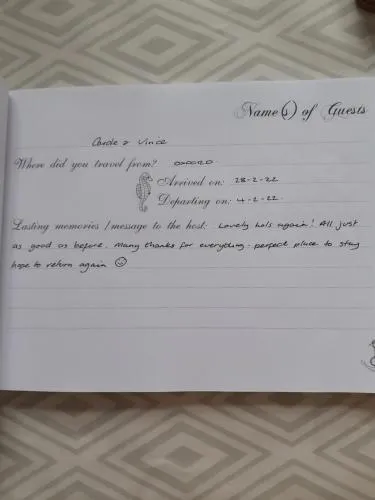 Name(s) of Guests
Carole & Vince
Where did you travel from? OXFORD.
Arrived on: 28-2-22
Departing on: 4-2-22.
Lasting memories / message to the host: Lovely hols again! All just
as good as before. Many thanks for everything. perfect place to stay
hope to return again ☺